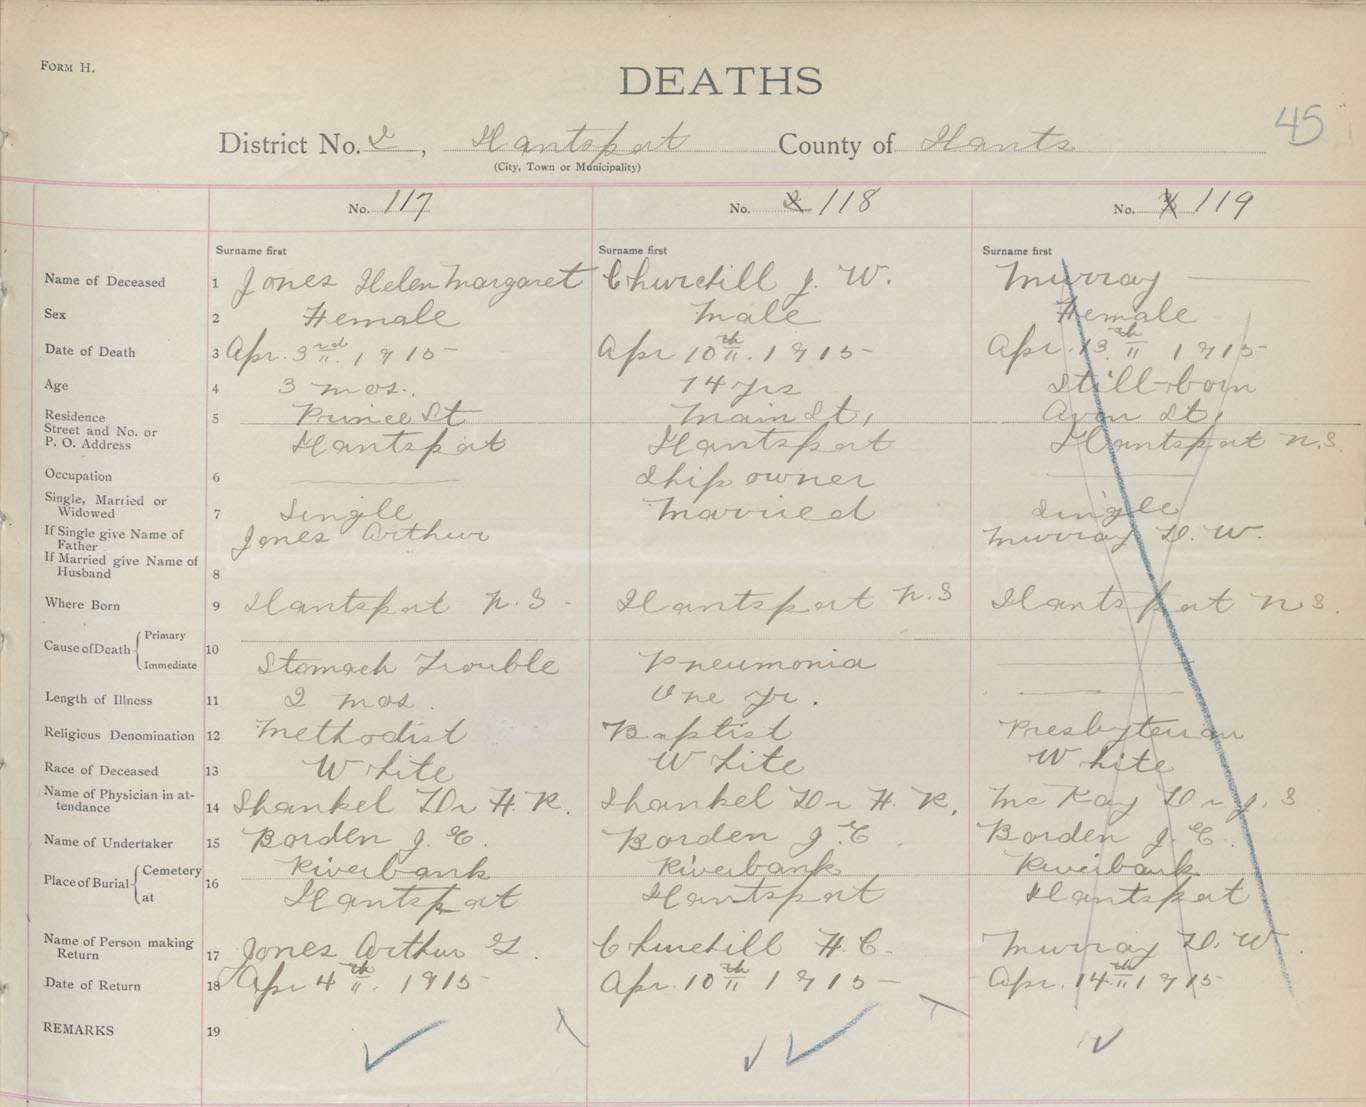 FORM H.
DEATHS
45
District No. 2, Hantsport County of Hants
(City, Town or Municipality)
No. 117 No. 2 118 No. 119
Surname first Surname first Surname first
Name of Deceased 1 Jones Helen Margaret Churchill J. W. Murray
Sex 2 Female Male Female
Date of Death 3 Apr. 3rd 1915 Apr 10th 1915 Apr. 13th 1915
Age 4 3 mos. 74 yrs Still-born
Residence 5 Prince St Main St, Avon St,
Street and No. or
P. O. Address Hantsport Hantsport Hantsport N.S.
Occupation 6 Ship owner
Single, Married or
Widowed 7 Single Married Single
If Single give Name of
Father Jones Arthur Murray D. W.
If Married give Name of
Husband 8
Where Born 9 Hantsport N.S. Hantsport N.S Hantsport N S.
Cause of Death Primary 10
Immediate Stomach Trouble Pneumonia
Length of Illness 11 2 mos. One yr.
Religious Denomination 12 Methodist Baptist Presbyterian
Race of Deceased 13 White White White
Name of Physician in at-
tendance 14 Shankel Dr H. R. Shankel Dr H. R. McKay Dr J. S
Name of Undertaker 15 Borden J. E. Borden J. E. Borden J. E.
Place of Burial Cemetery 16 Riverbank Riverbank Riverbank
at Hantsport Hantsport Hantsport
Name of Person making
Return 17 Jones Arthur L. Churchill H. C. Murray D. W.
Date of Return 18 Apr 4th 1915 Apr. 10th 1915 Apr. 14th 1915
REMARKS 19